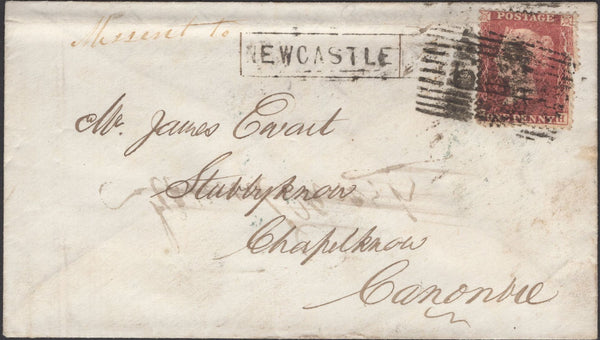 Missent to
NEWCASTLE
POSTAGE
Mr. James Ewart
Stubbyknow
Chapelknow
Canonbie